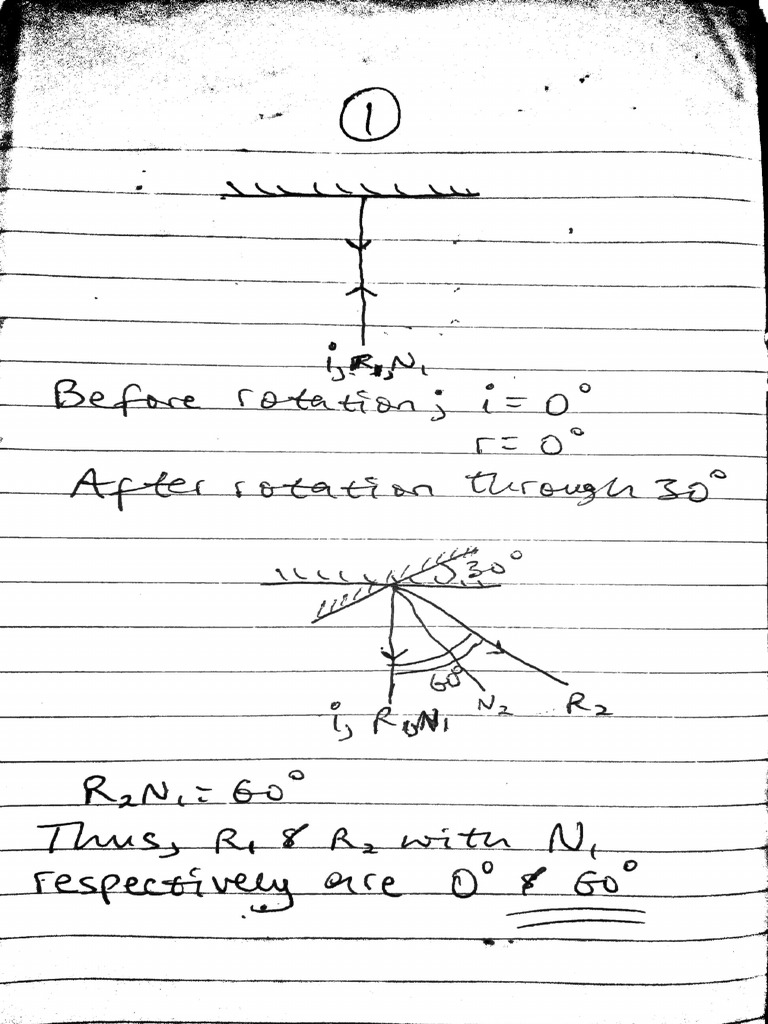 1
i, R1, N1
Before rotation; i = 0°
r = 0°
After rotation through 30°
30°
60°
N2
R2
i, R1, N1
R2N1 = 60°
Thus, R1 & R2 with N1
respectively are 0° & 60°